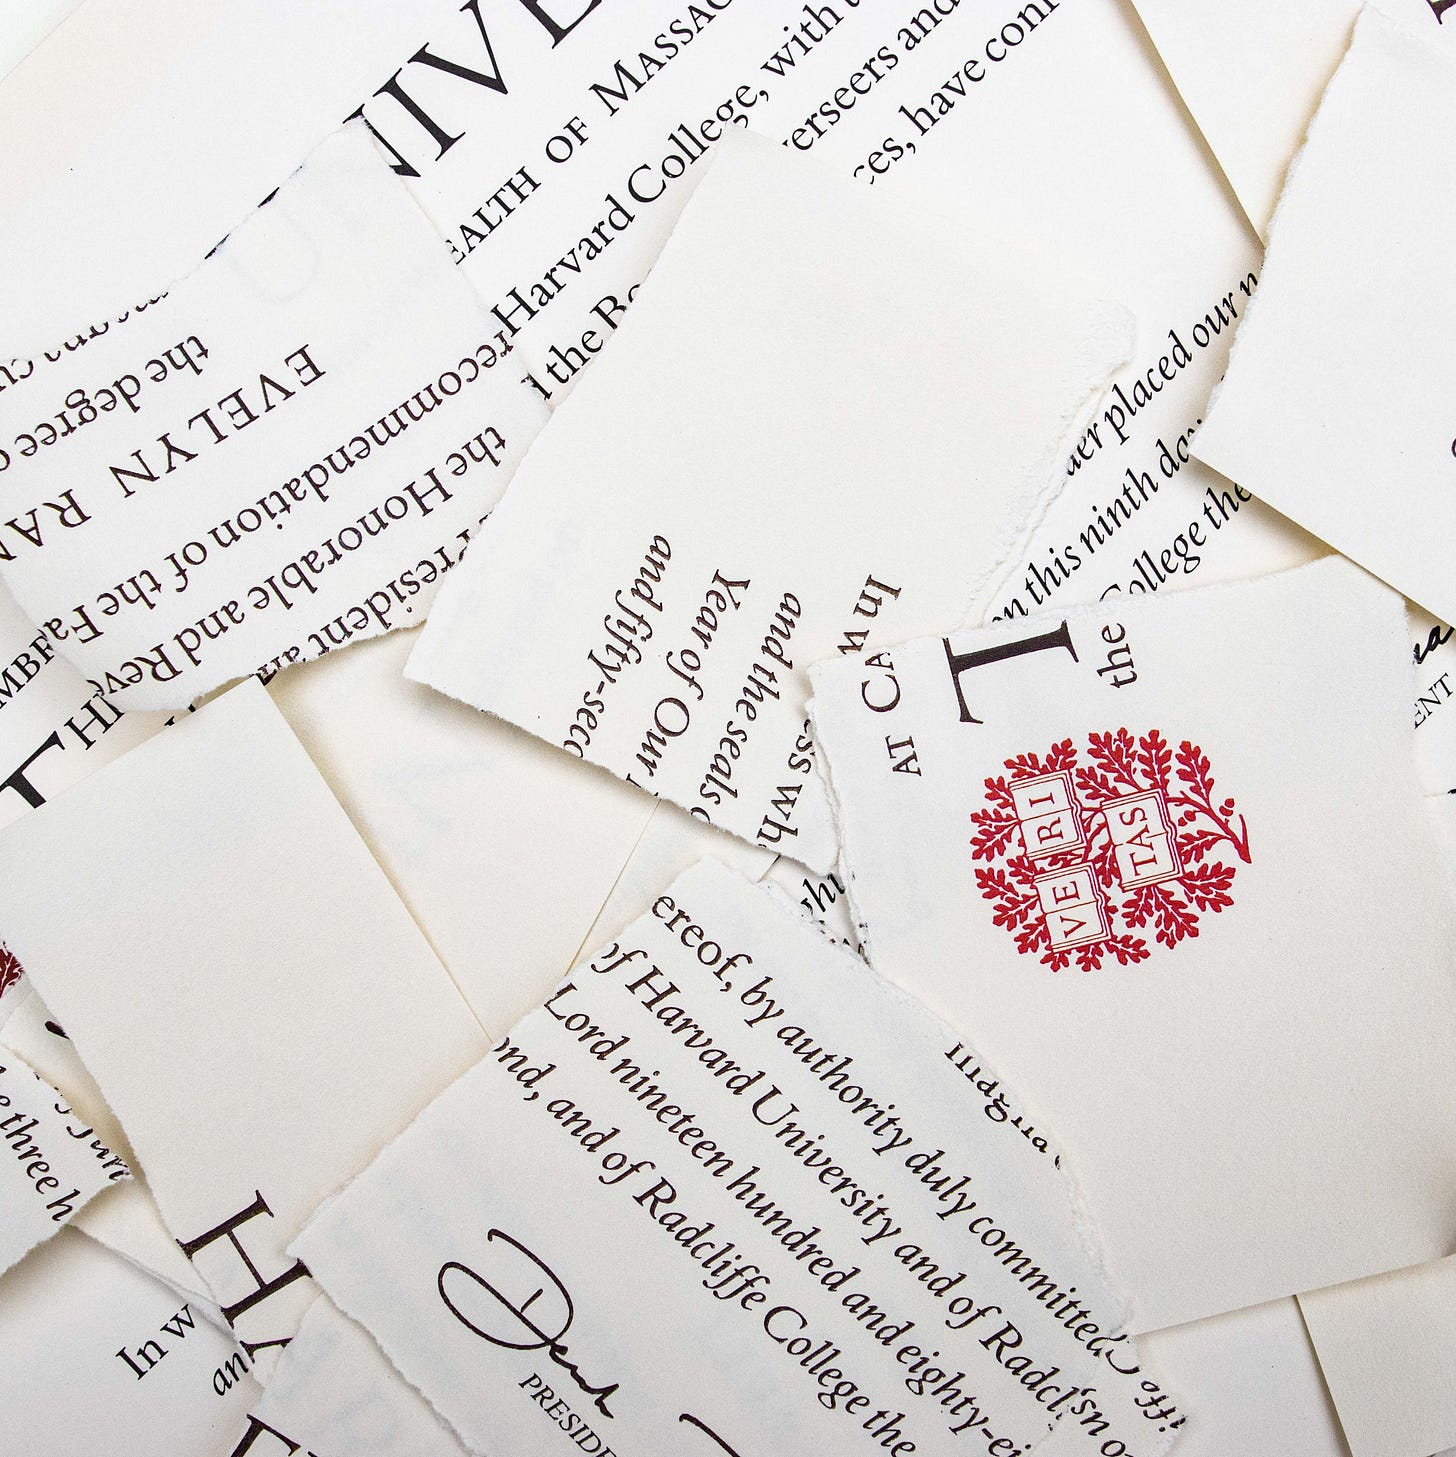 NIVE
EALTH OF MASSAC
Harvard College, with
the Bo
erseers and
ces, have con
EVELYN RA
the degree
recommendation of the Fa
the Honorable and Rev
President an
MBR
placed our
on this ninth day
College the
In w
and the seals
Year of Our
and fifty-seco
ess wh
AT CA
T
the
VE RI
TAS
ENT
whi
ereof, by authority duly committed
of Harvard University and of Radcl
Lord nineteen hundred and eighty-ei
ond, and of Radcliffe College the
magna
PRESIDE
three h
HA
In w
an